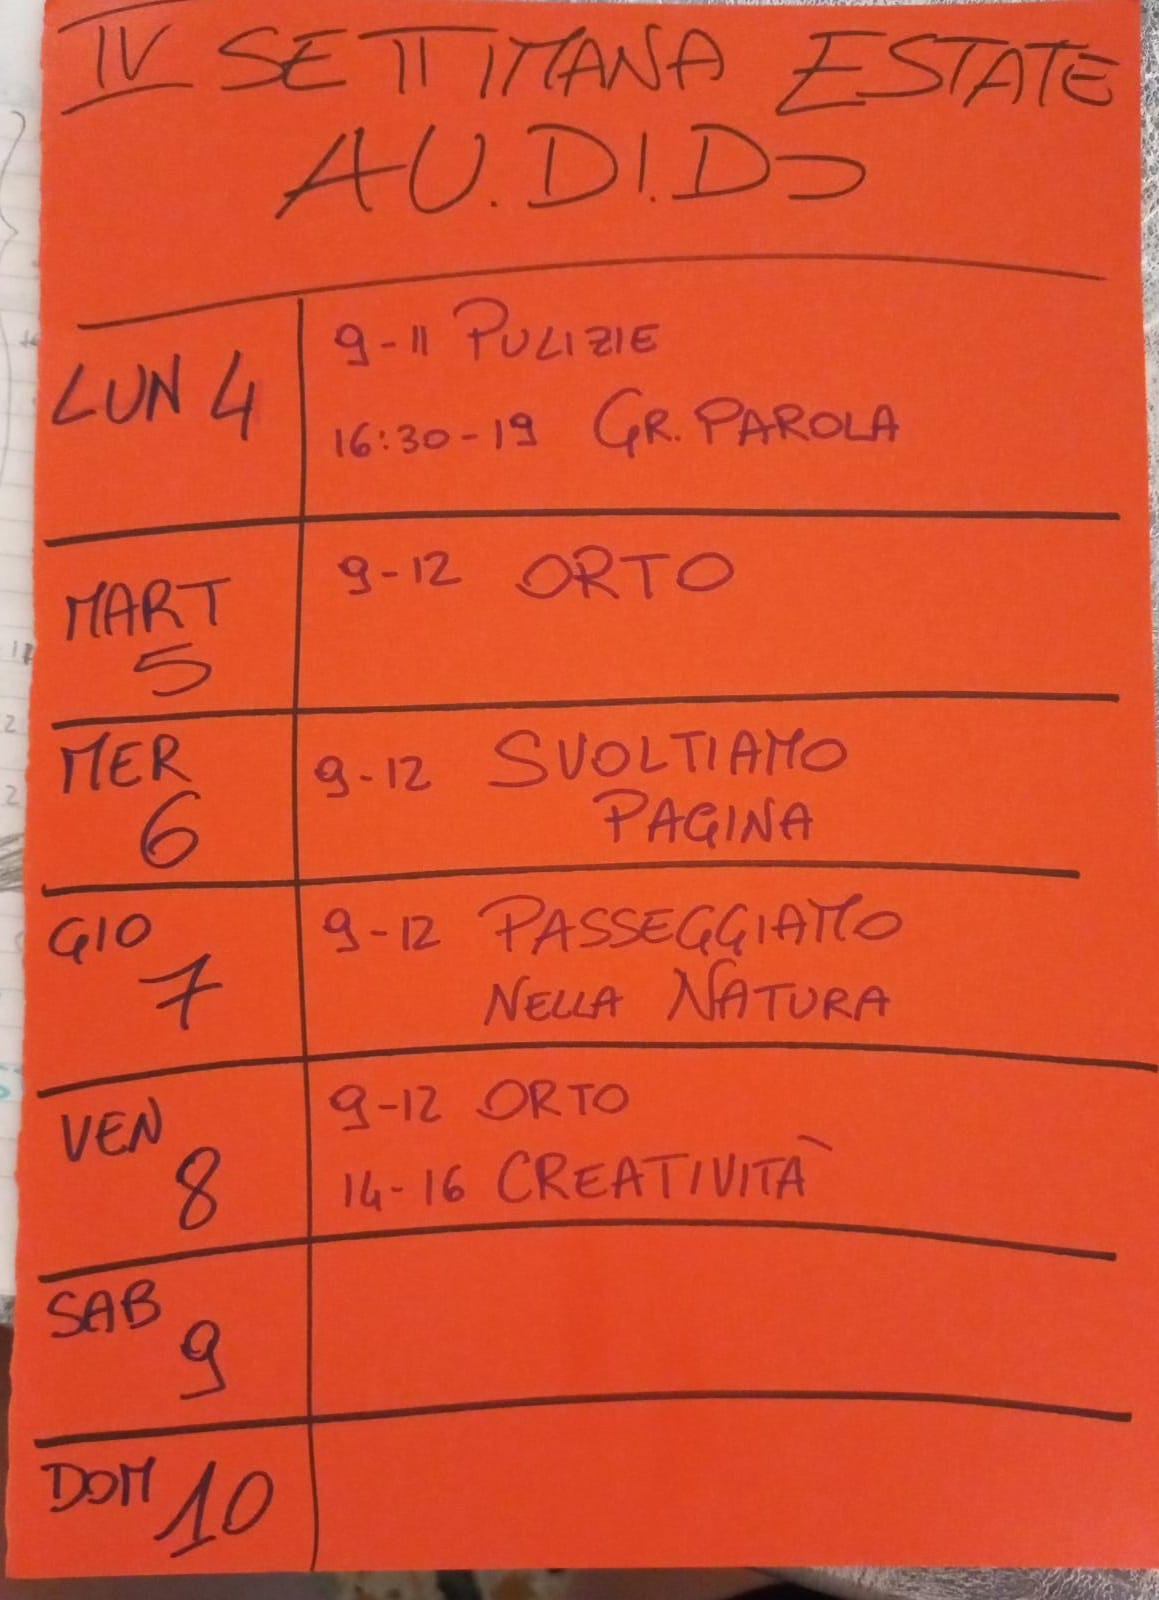 IV SETTIMANA ESTATE
AU.DI.DO
LUN 4
9-11 PULIZIE
16:30-19 GR. PAROLA
MART
5
9-12 ORTO
MER
6
9-12 SVOLTIAMO
PAGINA
GIO
7
9-12 PASSEGGIAMO
NELLA NATURA
VEN
8
9-12 ORTO
14-16 CREATIVITÀ
SAB
9
DOM 10